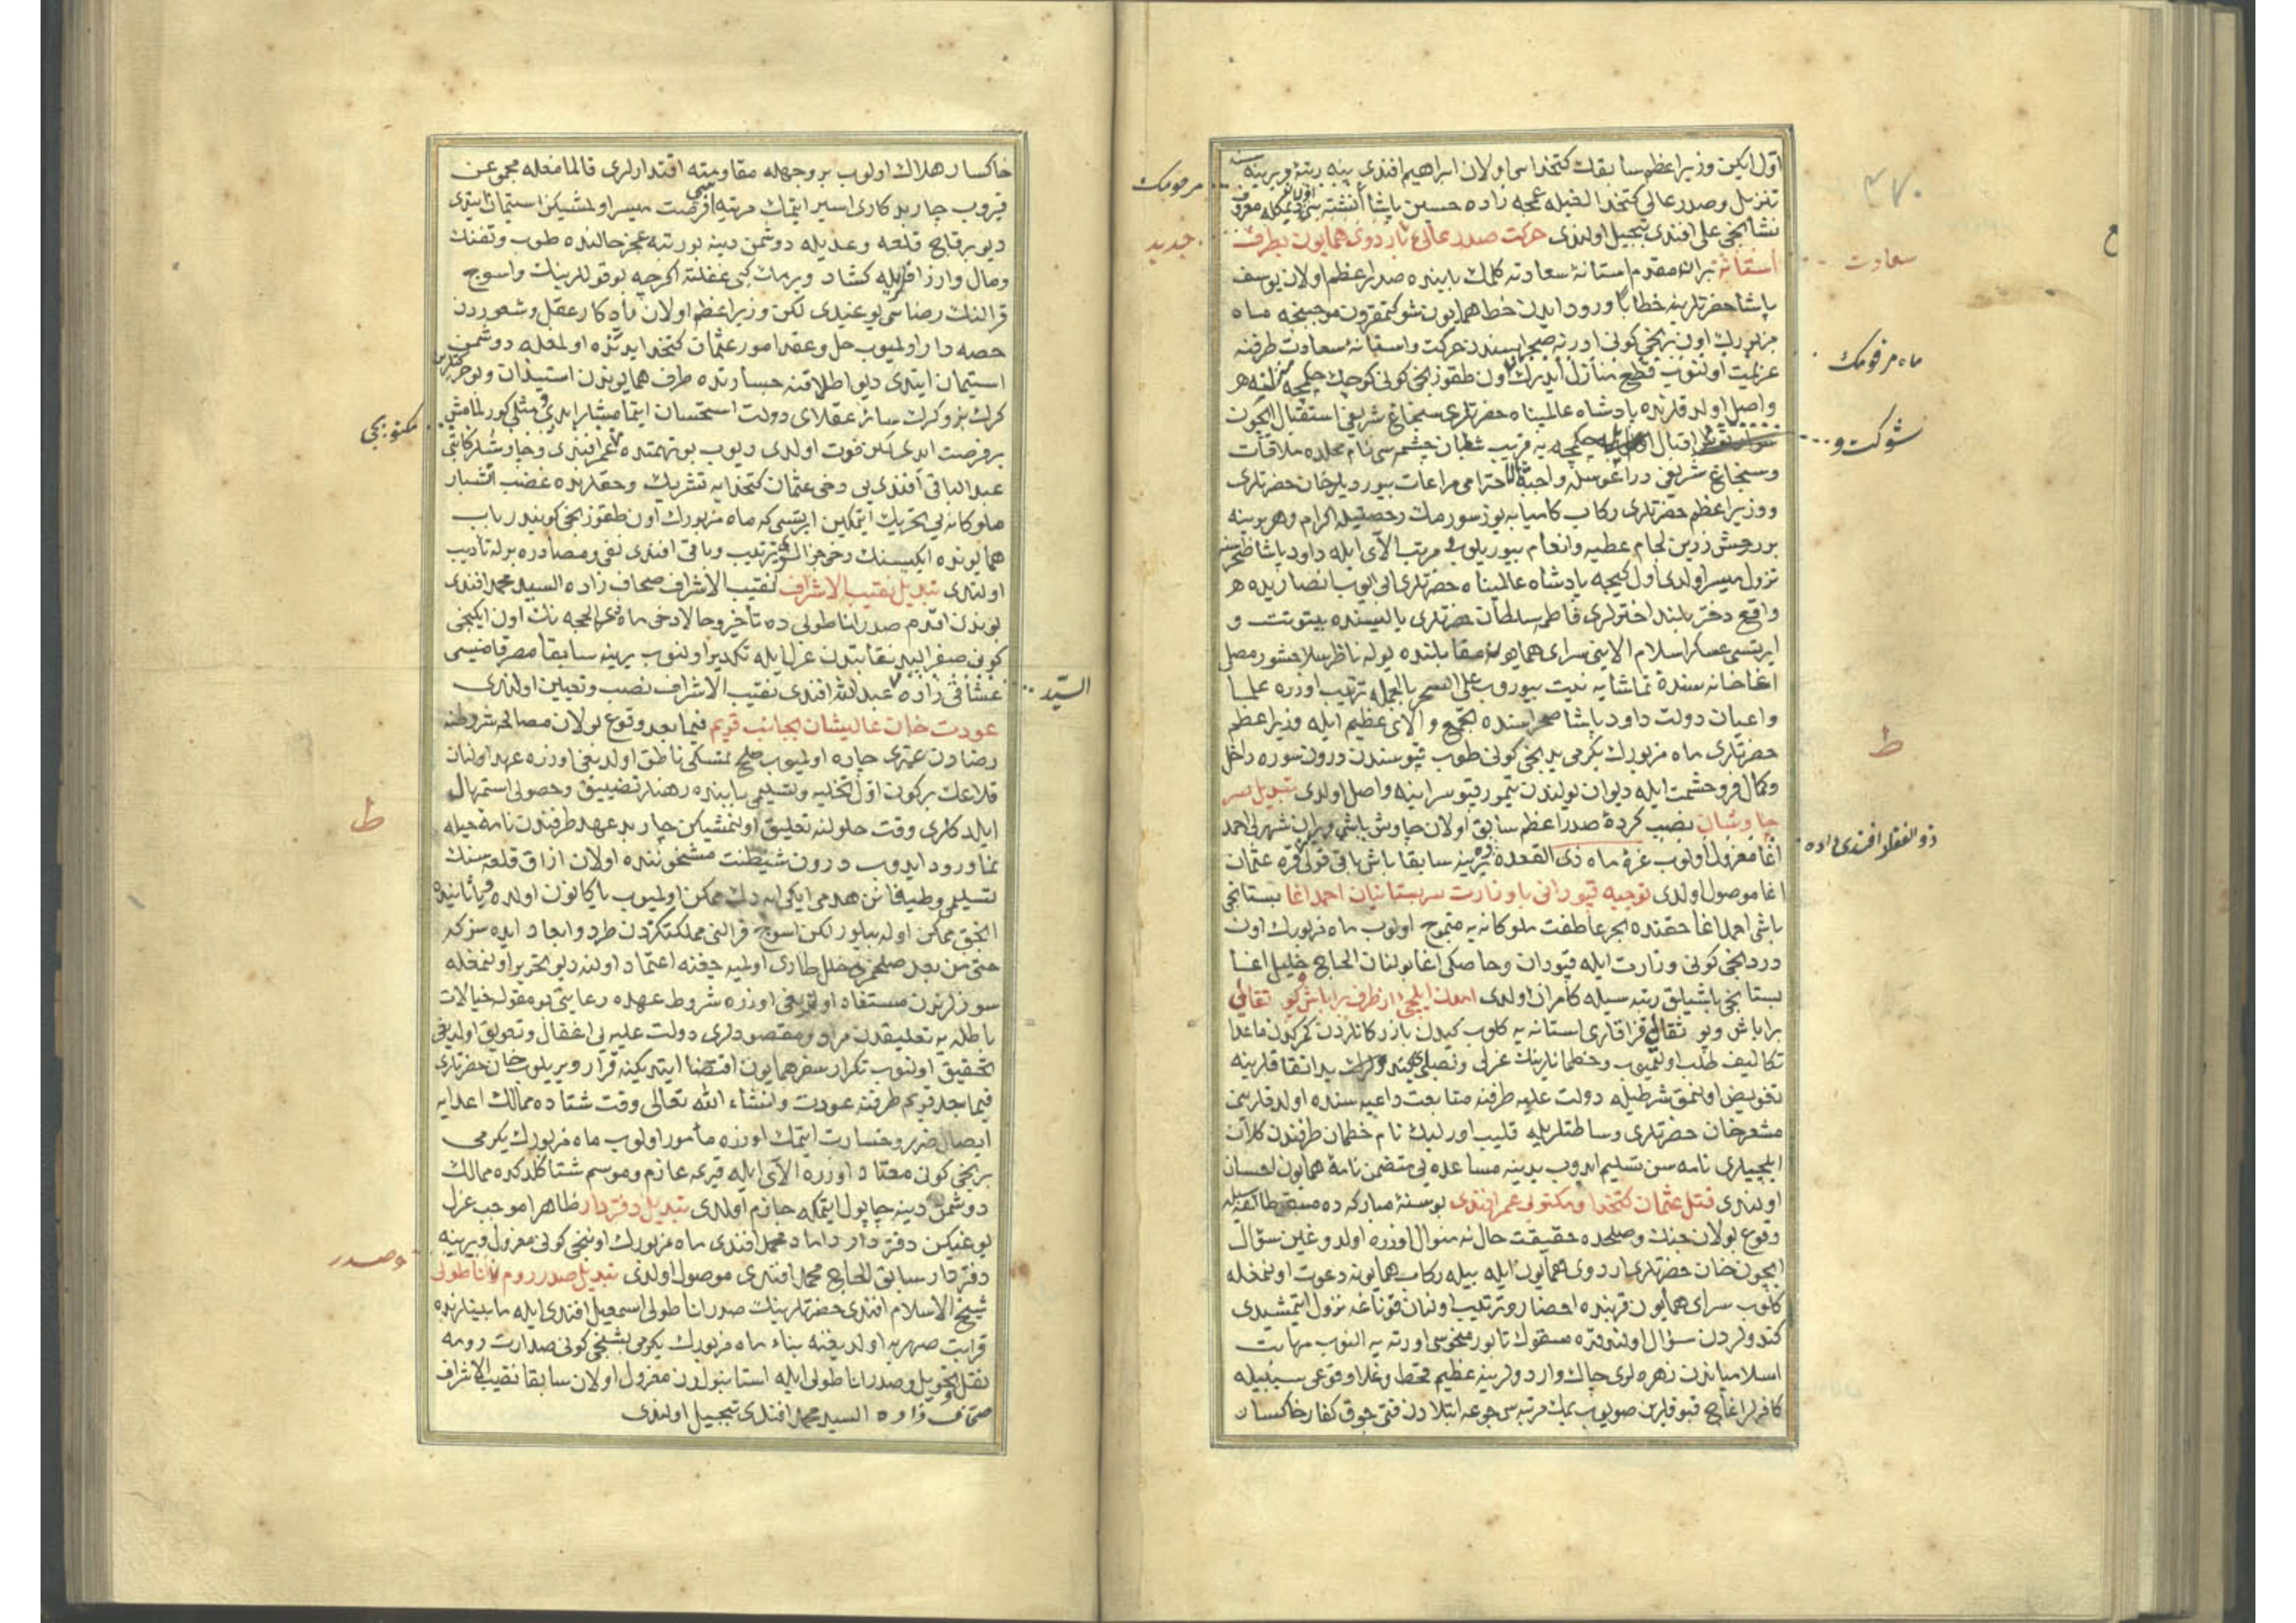 اول ایکن وزیر اعظم سابقك كتخداسی اولان ابراهیم افندی ینه رتبهٔ وزیرینه
تنزیل وصدر عالی كتخدالغیله عمجه زاده حسین پاشا
نشانجی علی افندی تبجیل اولندی حركت صدر عالی با اردوی همایون بطرف
آستانه مقدم آستانهٔ سعادته كلمك بابنده صدر اعظم اولان یوسف
پاشا حضرتلرینه خطابا ورود ایدن خط همایون شوكتمقرون موجبنجه ماه
مزبورك اون برنجی كونی ادرنه صحراسندن حركت واستانهٔ سعادت طرفنه
عزیمت اولنوب قطع منازل ایدرك اون طقوزنجی كونی كوچك چكمجه منزلنه
واصل اولدقلرنده پادشاه عالمپناه حضرتلری سنجاغ شریفی استقبال ایچون
اقبال چكمجه یه قریب شیطان چشمه سی نام محلده ملاقات
وسنجاغ شریفی دراغوسله واجبة الاحترامی مراعات بیوردیلر خان حضرتلری
ووزیر اعظم حضرتلری ركاب كامیابه یوز سورمك رخصتیله اكرام وهر برینه
برر رخش زرین لجام عطیه وانعام بیوریلوب مرتب آلای ایله داود پاشا
نزول میسر اولدی اول كیجه پادشاه عالمپناه حضرتلری ابی ایوب انصاریده
واقع دختر بلند اخترلری فاطمه سلطان حضرتلری یالیسنده بیتوتت و
ایرتسی عسكر اسلام آلایی سرای همایون مقابلنده یوله ناظر
اغاخانه سنده تماشایه نیت بیوروب علی السحر بالجمله ترتیب اوزره علما
واعیان دولت داود پاشا صحراسنده تجمع والای عظیم ایله وزیر اعظم
حضرتلری ماه مزبورك یكرمی یدنجی كونی طوب قپوسندن درون سوره داخل
وكمال فر وحشمت ایله دیوان یولندن تیمور قپو سراینه واصل اولدی تبدیل سر
چاوشان نصب كردهٔ صدر اعظم سابق اولان چاوش باشی ویران شهرلی احمد
اغا معزول اولوب غرهٔ ماه ذی القعده ده یرینه سابقا باش باقی قولی قره عثمان
اغا موصول اولدی توجیه قپودانی با وزارت سربستانیان احمد اغا بستانجی
باشی احمد اغا حقنده ابحر عاطفت ملوكانه یه متموج اولوب ماه مزبورك اون
دردنجی كونی وزارت ایله قپودان وخاصكی اغا بولنان الحاج خلیل اغا
بستانجی باشیلق رتبه سیله كامران اولدی آمدن ایلچی از طرف براباش وبو تقالی
براباش وبو تقال قزاقلری استانه یه كلوب كیدن بازركانلردن كمركدن ماعدا
تكالیف طلب اولنمیوب وخطمانلرینك عزلی ونصبلری كندولرك ید اتفاقلرینه
تفویض اولنمق شرطیله دولت علیه طرفنه متابعت داعیه سنده اولدقلرین
مشعر خان حضرتلری وساطتلریله قلیب اورلیك نام خطمان طرفندن كلان
ایلچیلری نامه سن تسلیم ایدوب یدینه مساعده یی متضمن نامهٔ همایون احسان
اولندی قتل عثمان كتخدا ومكتوبی عمر افندی بو سنهٔ مباركه ده
وقوع بولان جنك وصلحده حقیقت حال نه منوال اوزره اولدوغین سؤال
ایچون خان حضرتلری اردوی همایون ایله بیله ركاب همایونه دعوت اولنمغله
كلوب سرای همایون قربنده احضار وترتیب اولنان قوناغه نزول ایتمشیدی
كندولردن سؤال اولندقده مسقوك تابور منحوسی اورته یه النوب مهابت
اسلامیاندن زهره لری چاك واردولرینه عظیم قحط وغلا وقوعی سببیله
كافرلر اغاچ قبوقلرین صویوب یمك مرتبه سی جوعه ابتلادن قتی چوق كفار خاكسار
مرقومك
جدید
سعادت
ماه مرقومك
شوكت و
ط
ذو الفقار افندی زاده
خاكسار هلاك اولوب بر وجهله مقاومته اقتدارلری قالمامغله مجموعن
قیروب چار بد كاری اسیر ایتمك مرتبه سی فرصت میسر اولمشیكن استیمان ایتدی
دیو بر قاچ قلعه وعدیله دوشمن دینه بو رتبه عجز حالنده طوب وتفنك
ومال وارزاقیله كشاد ویرمك كبی غفلته اكرچه بو قوللرینك واسوج
قرالنك رضاسی یوغیدی لكن وزیر اعظم اولان بادكار عقل وشعوردن
حصه دار اولمیوب حل وعقد امور عثمان كتخدا یدنده اولمغله دوشمن
استیمان ایتدی دیو اطلاقنه جسارتده طرف همایوندن استیذان
كرك بز وكرك سائر عقلای دولت استحسان ایتمامشلر ایدی مثلی كورلمامش
بر فرصت ایدی لكن فوت اولدی دیوب بو تهمتده عمر افندی وچاوشلر كاتبی
عبد الباقی افندی یی دخی عثمان كتخدایه تشریك وحقلرنده غضب اتشبار
ملوكانه یی تحریك ایتمكین ایرتسی كه ماه مزبورك اون طقوزنجی كونیدر باب
همایونده ایكیسنك دخی جزالری ترتیب وباقی افندی نفی ومصادره یرله تادیب
اولندی تبدیل نقیب الاشراف نقیب الاشراف صحاف زاده السید محمد افندی
بوندن اقدم صدر اناطولی ده تأخیر وحالا دخی ماه ذی الحجه نك اون ایكنجی
كونی صفر الید نقابتدن عزل ایله تكدیر اولنوب یرینه سابقا مصر قاضیسی
عشاقی زاده عبد الله افندی نقیب الاشراف نصب وتعیین اولندی
عودت خان عالیشان بجانب قریم فیما بعد وقوع بولان مصالحه شروطنه
رضادن غیری چاره اولمیوب صلح تمسكی ناطق اولدیغی اوزره عهد اولنان
قلاعك بركون اول تخلیه وتسلیمی بابنده رهنلر تضییق وحصولی استمهال
ایلدكلری وقت حلولنه تعلیق اولنمشیكن چار بد عهد طرفندن نامهٔ حیله
نما ورود ایدوب درون شیطنت مشحوننده اولان ازاق قلعه سنك
تسلیمی وطیغانك هدمی ایكی ایه دك ممكن اولمیوب یا كانون اولده ویا ثانیده
انجق ممكن اوله بیلور لكن اسوج قرالنی مملكتكزدن طرد وابعاد ایده سز كه
حتی من بعد صلحمزه خلل طاری اولمیه جغنه اعتماد اولنه دیو تحریر اولنمغله
سوزلرندن مستفاد اولدیغی اوزره شروط عهده رعایتی بو مقوله خیالات
باطله یه تعلیقدن مراد ومقصودلری دولت علیه یی اغفال وتعویق اولدیغی
تحقیق اولنوب تكرار سفر همایون اقتضا ایتدیكنه قرار ویریلوب خان حضرتلری
فیما بعد قریم طرفنه عودت وانشاء الله تعالی وقت شتاده ممالك اعدایه
ایصال ضرر وخسارت ایتمك اوزره مأمور اولوب ماه مزبورك یكرمی
برنجی كونی معتاد اوزره آلای ایله قریمه عازم وموسم شتا كلدكده ممالك
دوشمن دینه چاپول ایتمكه جازم اولدی تبدیل دفتردار ظاهرا موجب عزل
یوغیكن دفتردار داماد محمد افندی ماه مزبورك اوننجی كونی معزول ویرینه
دفتردار سابق الحاج محمد افندی موصول اولدی تبدیل صدر روم اناطولی
شیخ الاسلام افندی حضرتلرینك صدر اناطولی اسمعیل افندی ایله مابینلرنده
قرابت صهریه اولدیغنه بناء ماه مزبورك یكرمی بشنجی كونی صدارت رومه
نقل وتحویل وصدر اناطولی ایله استانبولدن معزول اولان سابقا نقیب الاشراف
صحاف زاده السید محمد افندی تبجیل اولندی
مكتوبجی
السید
ط
وصدر